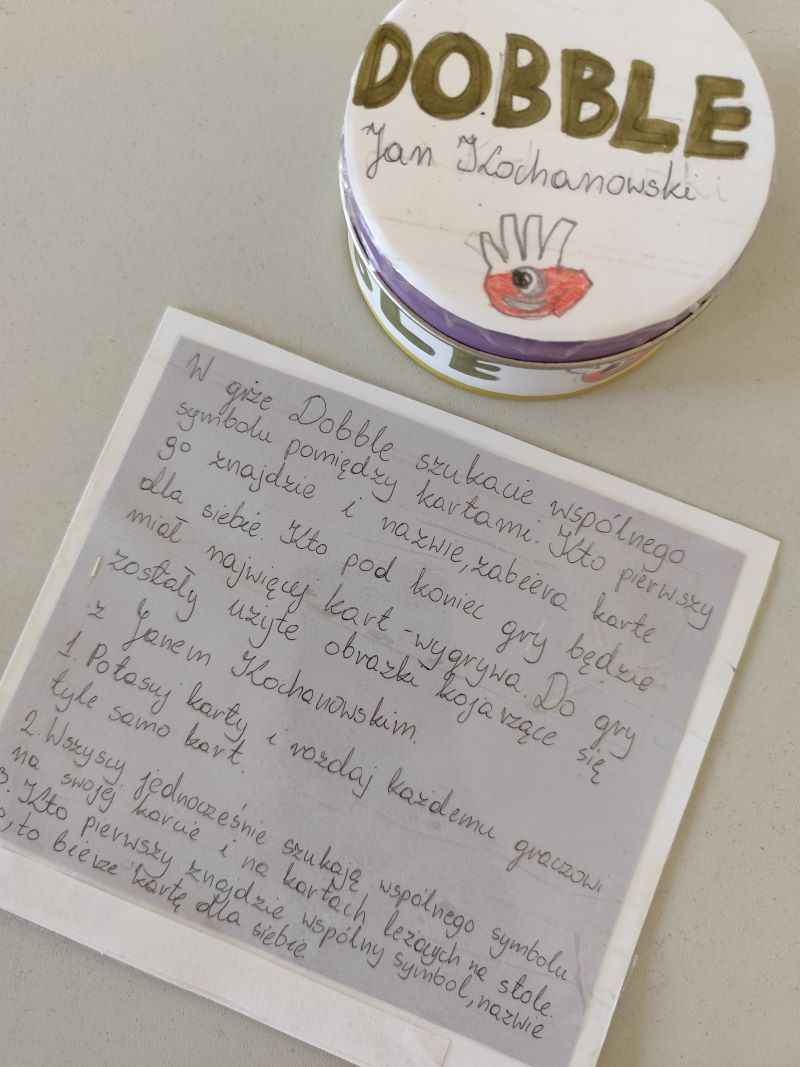 DOBBLE
Jan Kochanowski
BLE
W grze Dobble szukacie wspólnego
symbolu pomiędzy kartami. Kto pierwszy
go znajdzie i nazwie, zabiera karte
dla siebie. Kto pod koniec gry będzie
miał najwięcej kart - wygrywa. Do gry
zostały użyte obrazki kojarzące się
z Janem Kochanowskim.
1. Potasuj karty i rozdaj każdemu graczowi
tyle samo kart.
2. Wszyscy jednocześnie szukają wspólnego symbolu
na swojej karcie i na kartach leżących na stole.
3. Kto pierwszy znajdzie wspólny symbol, nazwie
to bierze kartę dla siebie.